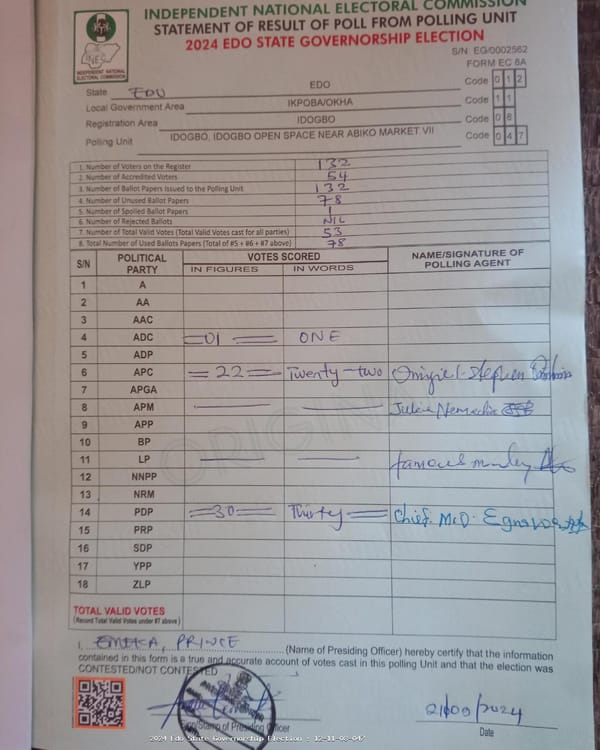 INDEPENDENT NATIONAL ELECTORAL COMMISSION
STATEMENT OF RESULT OF POLL FROM POLLING UNIT
2024 EDO STATE GOVERNORSHIP ELECTION
S/N EG/0002562
FORM EC 8A
INEC
INDEPENDENT NATIONAL ELECTORAL COMMISSION
State EDU EDO Code 0 1 2
Local Government Area IKPOBA/OKHA Code 1 1
Registration Area IDOGBO Code 0 8
Polling Unit IDOGBO, IDOGBO OPEN SPACE NEAR ABIKO MARKET VII Code 0 4 7
1. Number of Voters on the Register 132
2. Number of Accredited Voters 54
3. Number of Ballot Papers Issued to the Polling Unit 132
4. Number of Unused Ballot Papers 78
5. Number of Spoiled Ballot Papers 1
6. Number of Rejected Ballots NIL
7. Number of Total Valid Votes (Total Valid Votes cast for all parties) 53
8. Total Number of Used Ballots Papers (Total of #5 + #6 + #7 above) 78
S/N POLITICAL PARTY VOTES SCORED NAME/SIGNATURE OF POLLING AGENT
IN FIGURES IN WORDS
1 A
2 AA
3 AAC
4 ADC 01 ONE
5 ADP
6 APC 22 Twenty-two Stephen
7 APGA
8 APM
9 APP
10 BP
11 LP famous
12 NNPP
13 NRM
14 PDP 30 Thirty Chief
15 PRP
16 SDP
17 YPP
18 ZLP
ORIGINAL
TOTAL VALID VOTES
(Record Total Valid Votes under #7 above)
I, EMEKA, PRINCE (Name of Presiding Officer) hereby certify that the information
contained in this form is a true and accurate account of votes cast in this polling Unit and that the election was
CONTESTED/NOT CONTESTED
Sign/Stamp of Presiding Officer
21/09/2024
Date
2024 Edo State Governorship Election - 12-11-08-047